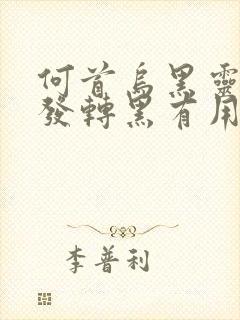 何首烏黑靈
發轉黑有用
李普利